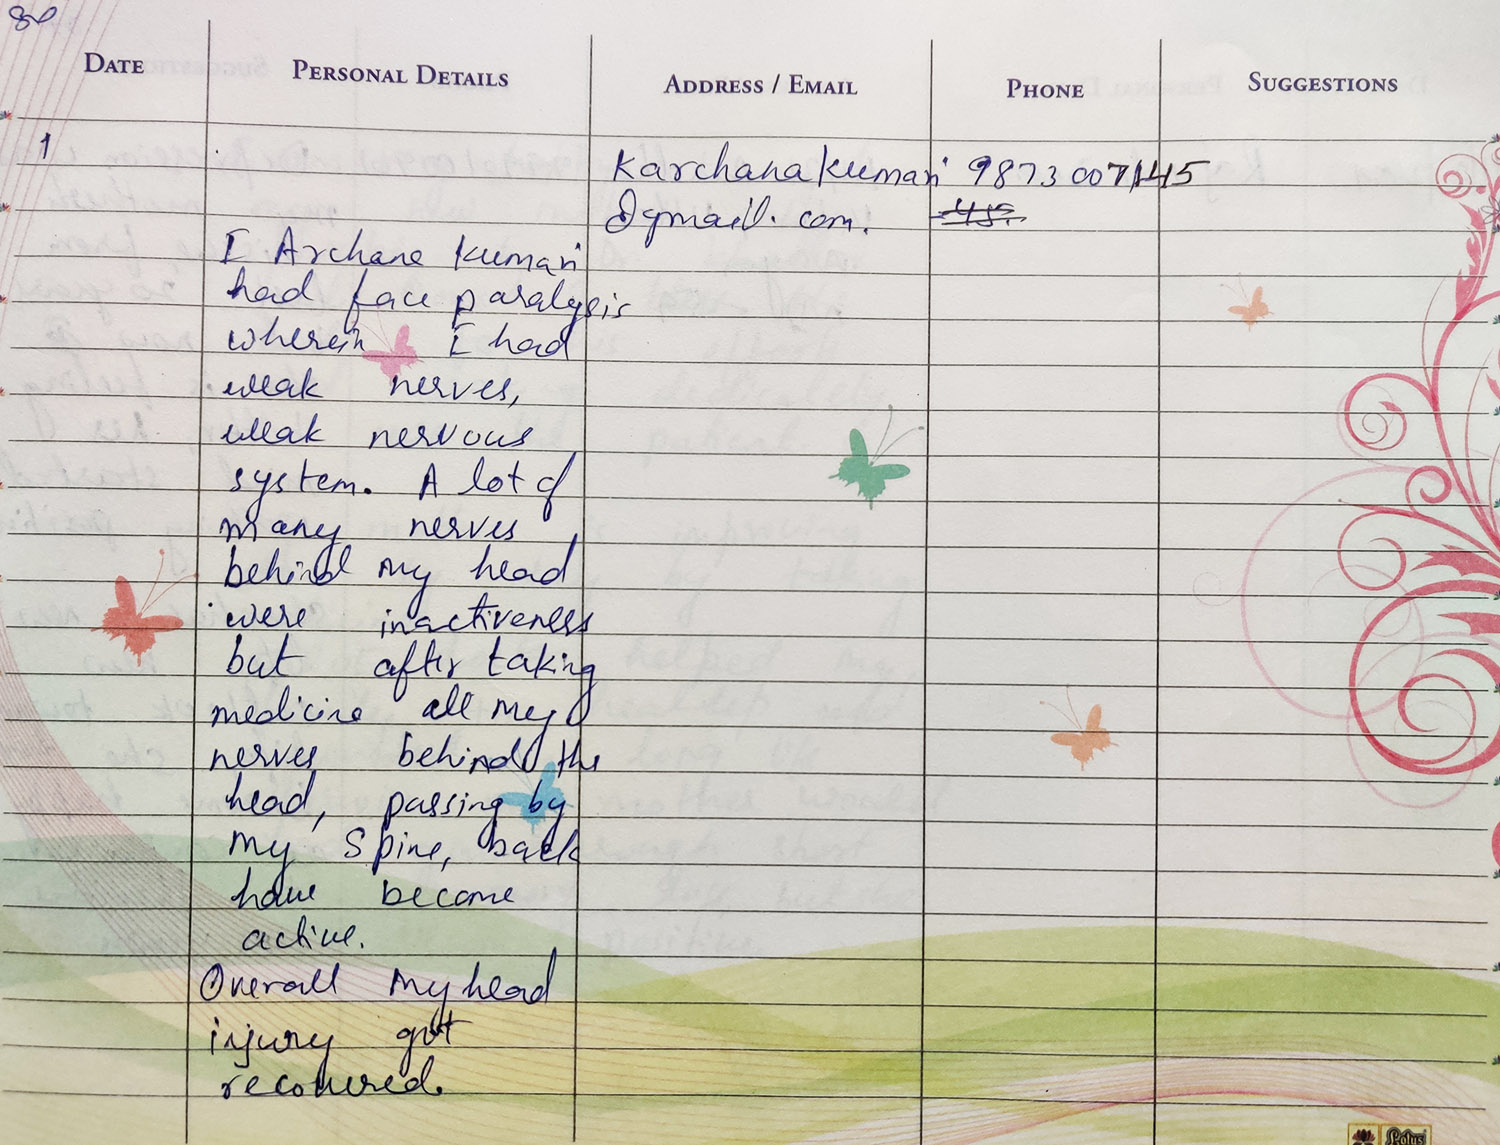 DATE PERSONAL DETAILS ADDRESS / EMAIL PHONE SUGGESTIONS
1
Karchanakumari 9873007145
@gmail.com.
I Archana kumari
had face paralysis
wherein I had
weak nerves,
weak nervous
system. A lot of
many nerves
behind my head
were inactiveness
but after taking
medicine all my
nerves behind the
head, passing by
my Spine, back
have become
active.
Overall my head
injury got
recovered.
Lotus